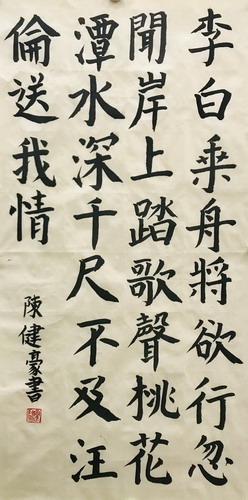 李白乘舟將欲行忽
聞岸上踏歌聲桃花
潭水深千尺不及汪
倫送我情
陳健豪書